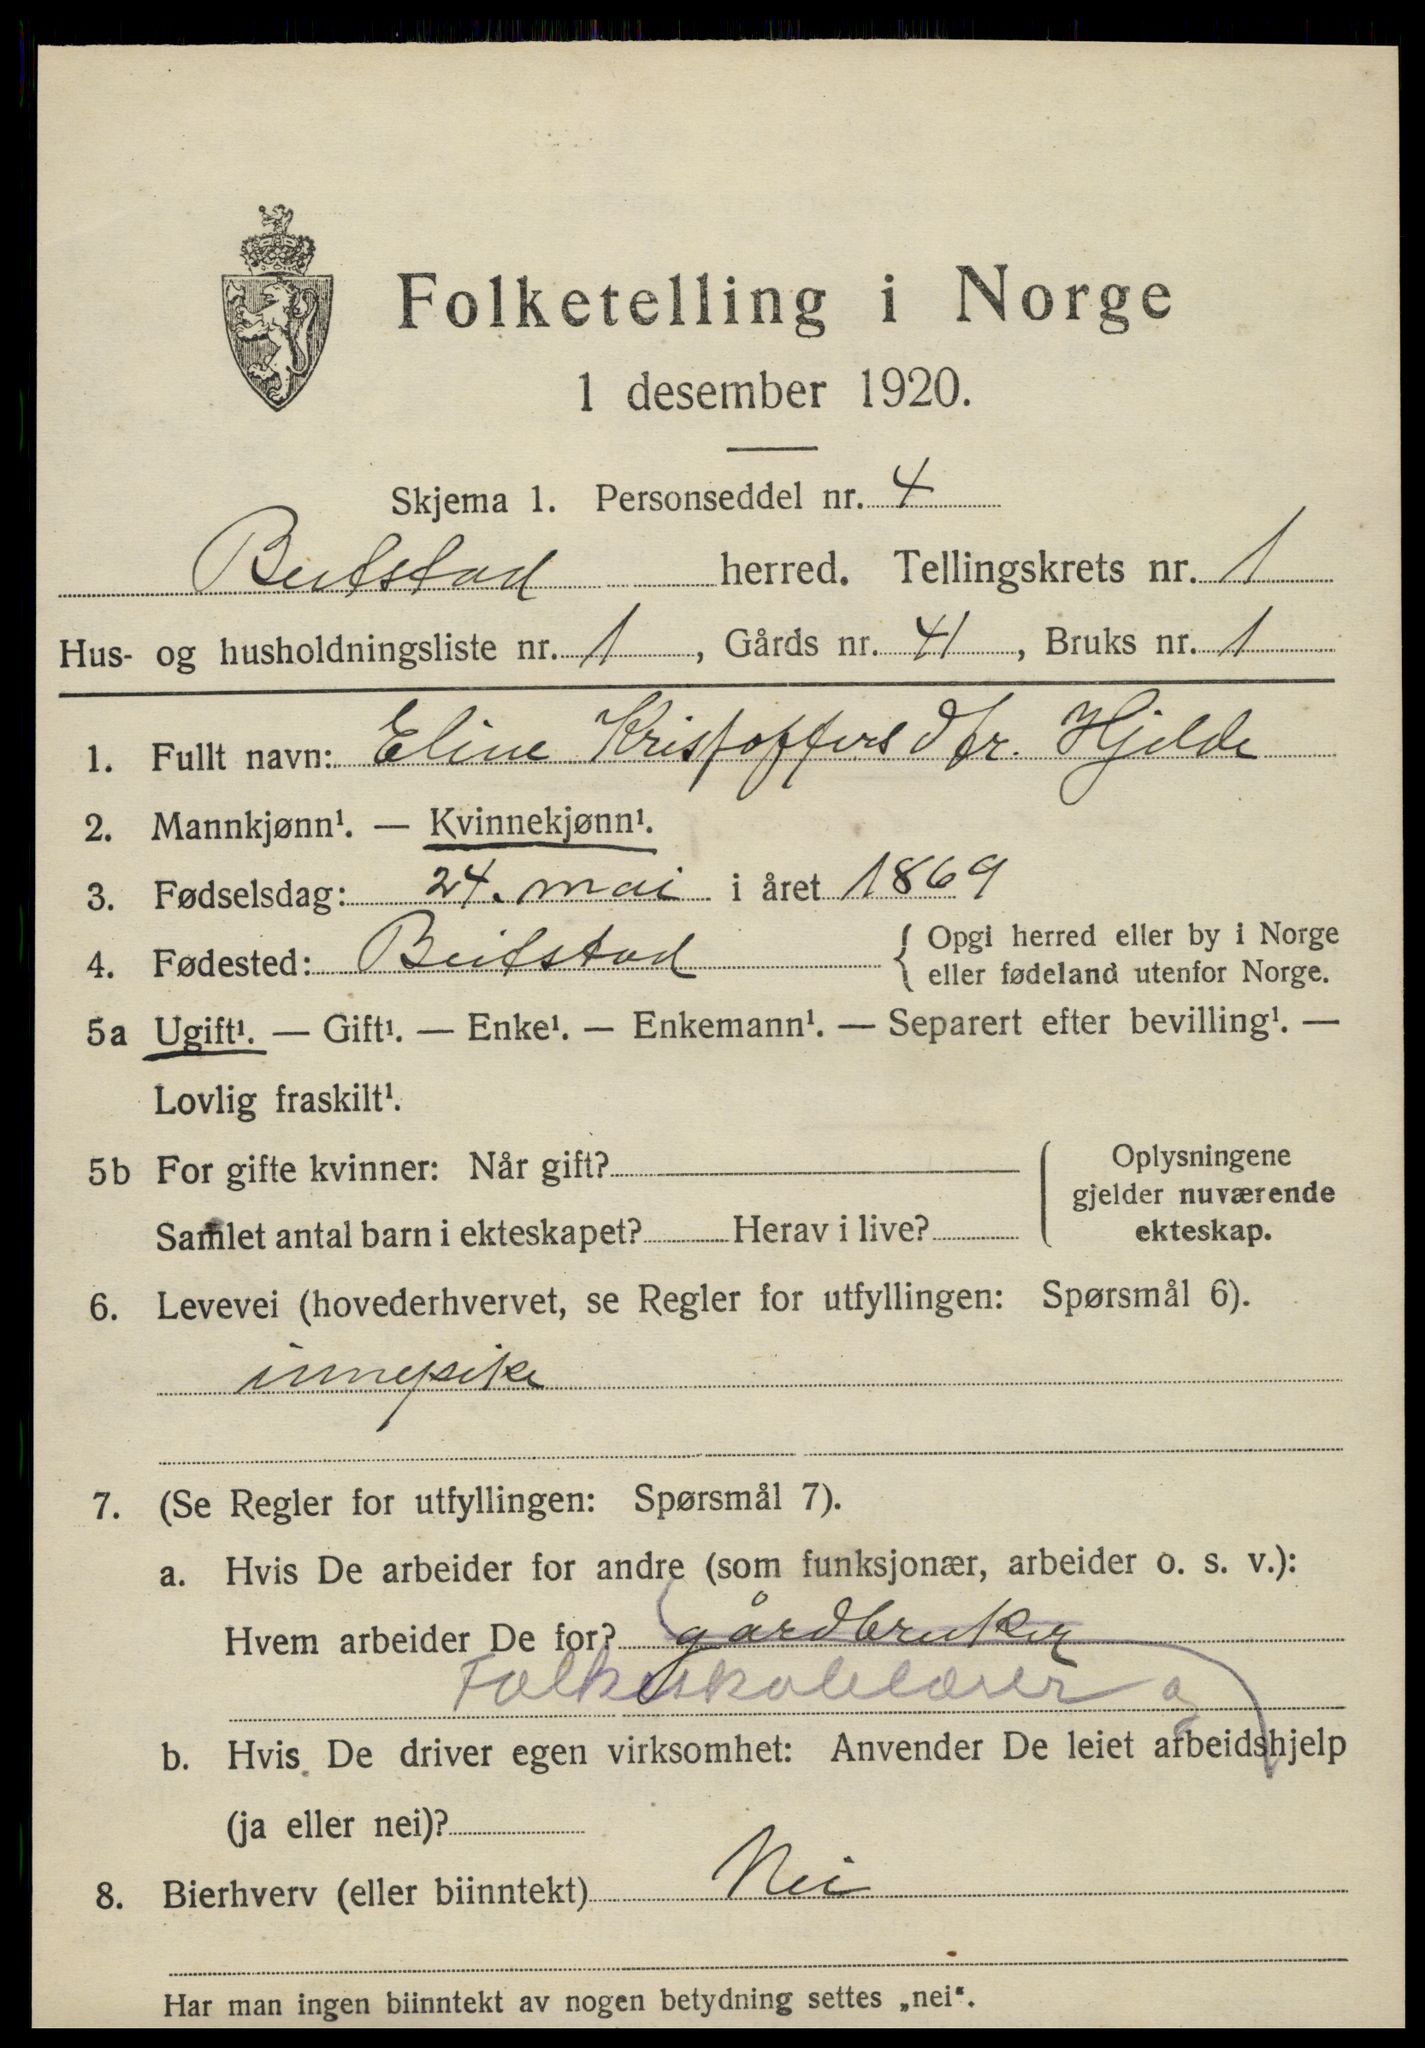 Folketelling i Norge
1 desember 1920.
Skjema 1. Personseddel nr. 4
Beitstad herred. Tellingskrets nr. 1
Hus- og husholdningsliste nr. 1, Gårds nr. 41, Bruks nr. 1
1. Fullt navn: Eline Kristoffersdtr. Hjelde
2. Mannkjønn¹. — Kvinnekjønn¹.
3. Fødselsdag: 24. mai i året 1869
4. Fødested: Beitstad { Opgi herred eller by i Norge
eller fødeland utenfor Norge.
5a Ugift¹. — Gift¹. — Enke¹. — Enkemann¹. — Separert efter bevilling¹. —
Lovlig fraskilt¹.
5b For gifte kvinner: Når gift?
Samlet antal barn i ekteskapet? Herav i live?
Oplysningene
gjelder nuværende
ekteskap.
6. Levevei (hovederhvervet, se Regler for utfyllingen: Spørsmål 6).
innepike
7. (Se Regler for utfyllingen: Spørsmål 7).
a. Hvis De arbeider for andre (som funksjonær, arbeider o. s. v.):
Hvem arbeider De for? gårdbruker
Folkeskolelærer og
b. Hvis De driver egen virksomhet: Anvender De leiet arbeidshjelp
(ja eller nei)?
8. Bierhverv (eller biinntekt) Nei
Har man ingen biinntekt av nogen betydning settes „nei".